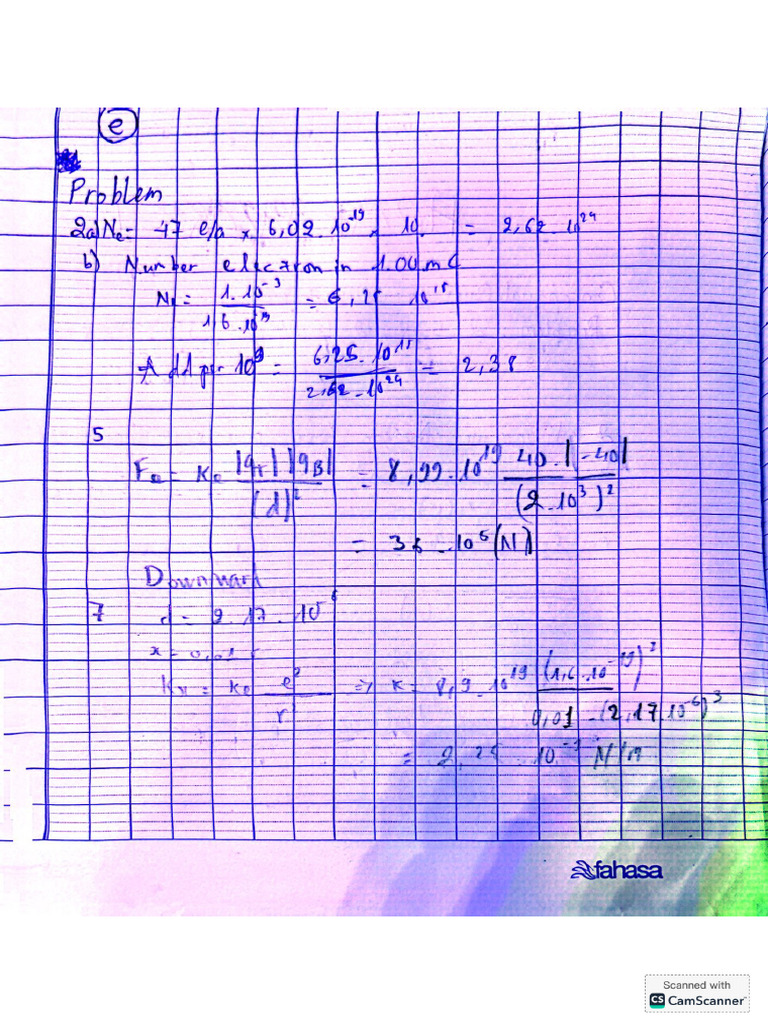 e
Problem
2a) Ne = 47 e/a x 6,02. 10^-19 x 10. = 2,62. 10^24
b) Number electron in 1.00 mC
Ne = 1.10^-3 / 1,6.10^19 = 6,25 10^15
Add per 10^9 = 6,25. 10^15 / 2,62 - 10^24 = 2,38
5
Fe = Ke |qT| |qB| / (d)^2 = 8,99. 10^19 40. |-40| / (2.10^3)^2
= 36 . 10^6 (N)
Downward
7 d = 2.17. 10^6
x = 0,01 r
Kx = ke e^2 / r^2 => K = 8,9. 10^19 (1,6.10^-19)^2 / 0,01 . (2,17.10^-6)^3
= 2,25 10^-9 N/m
fahasa
Scanned with
CS CamScanner